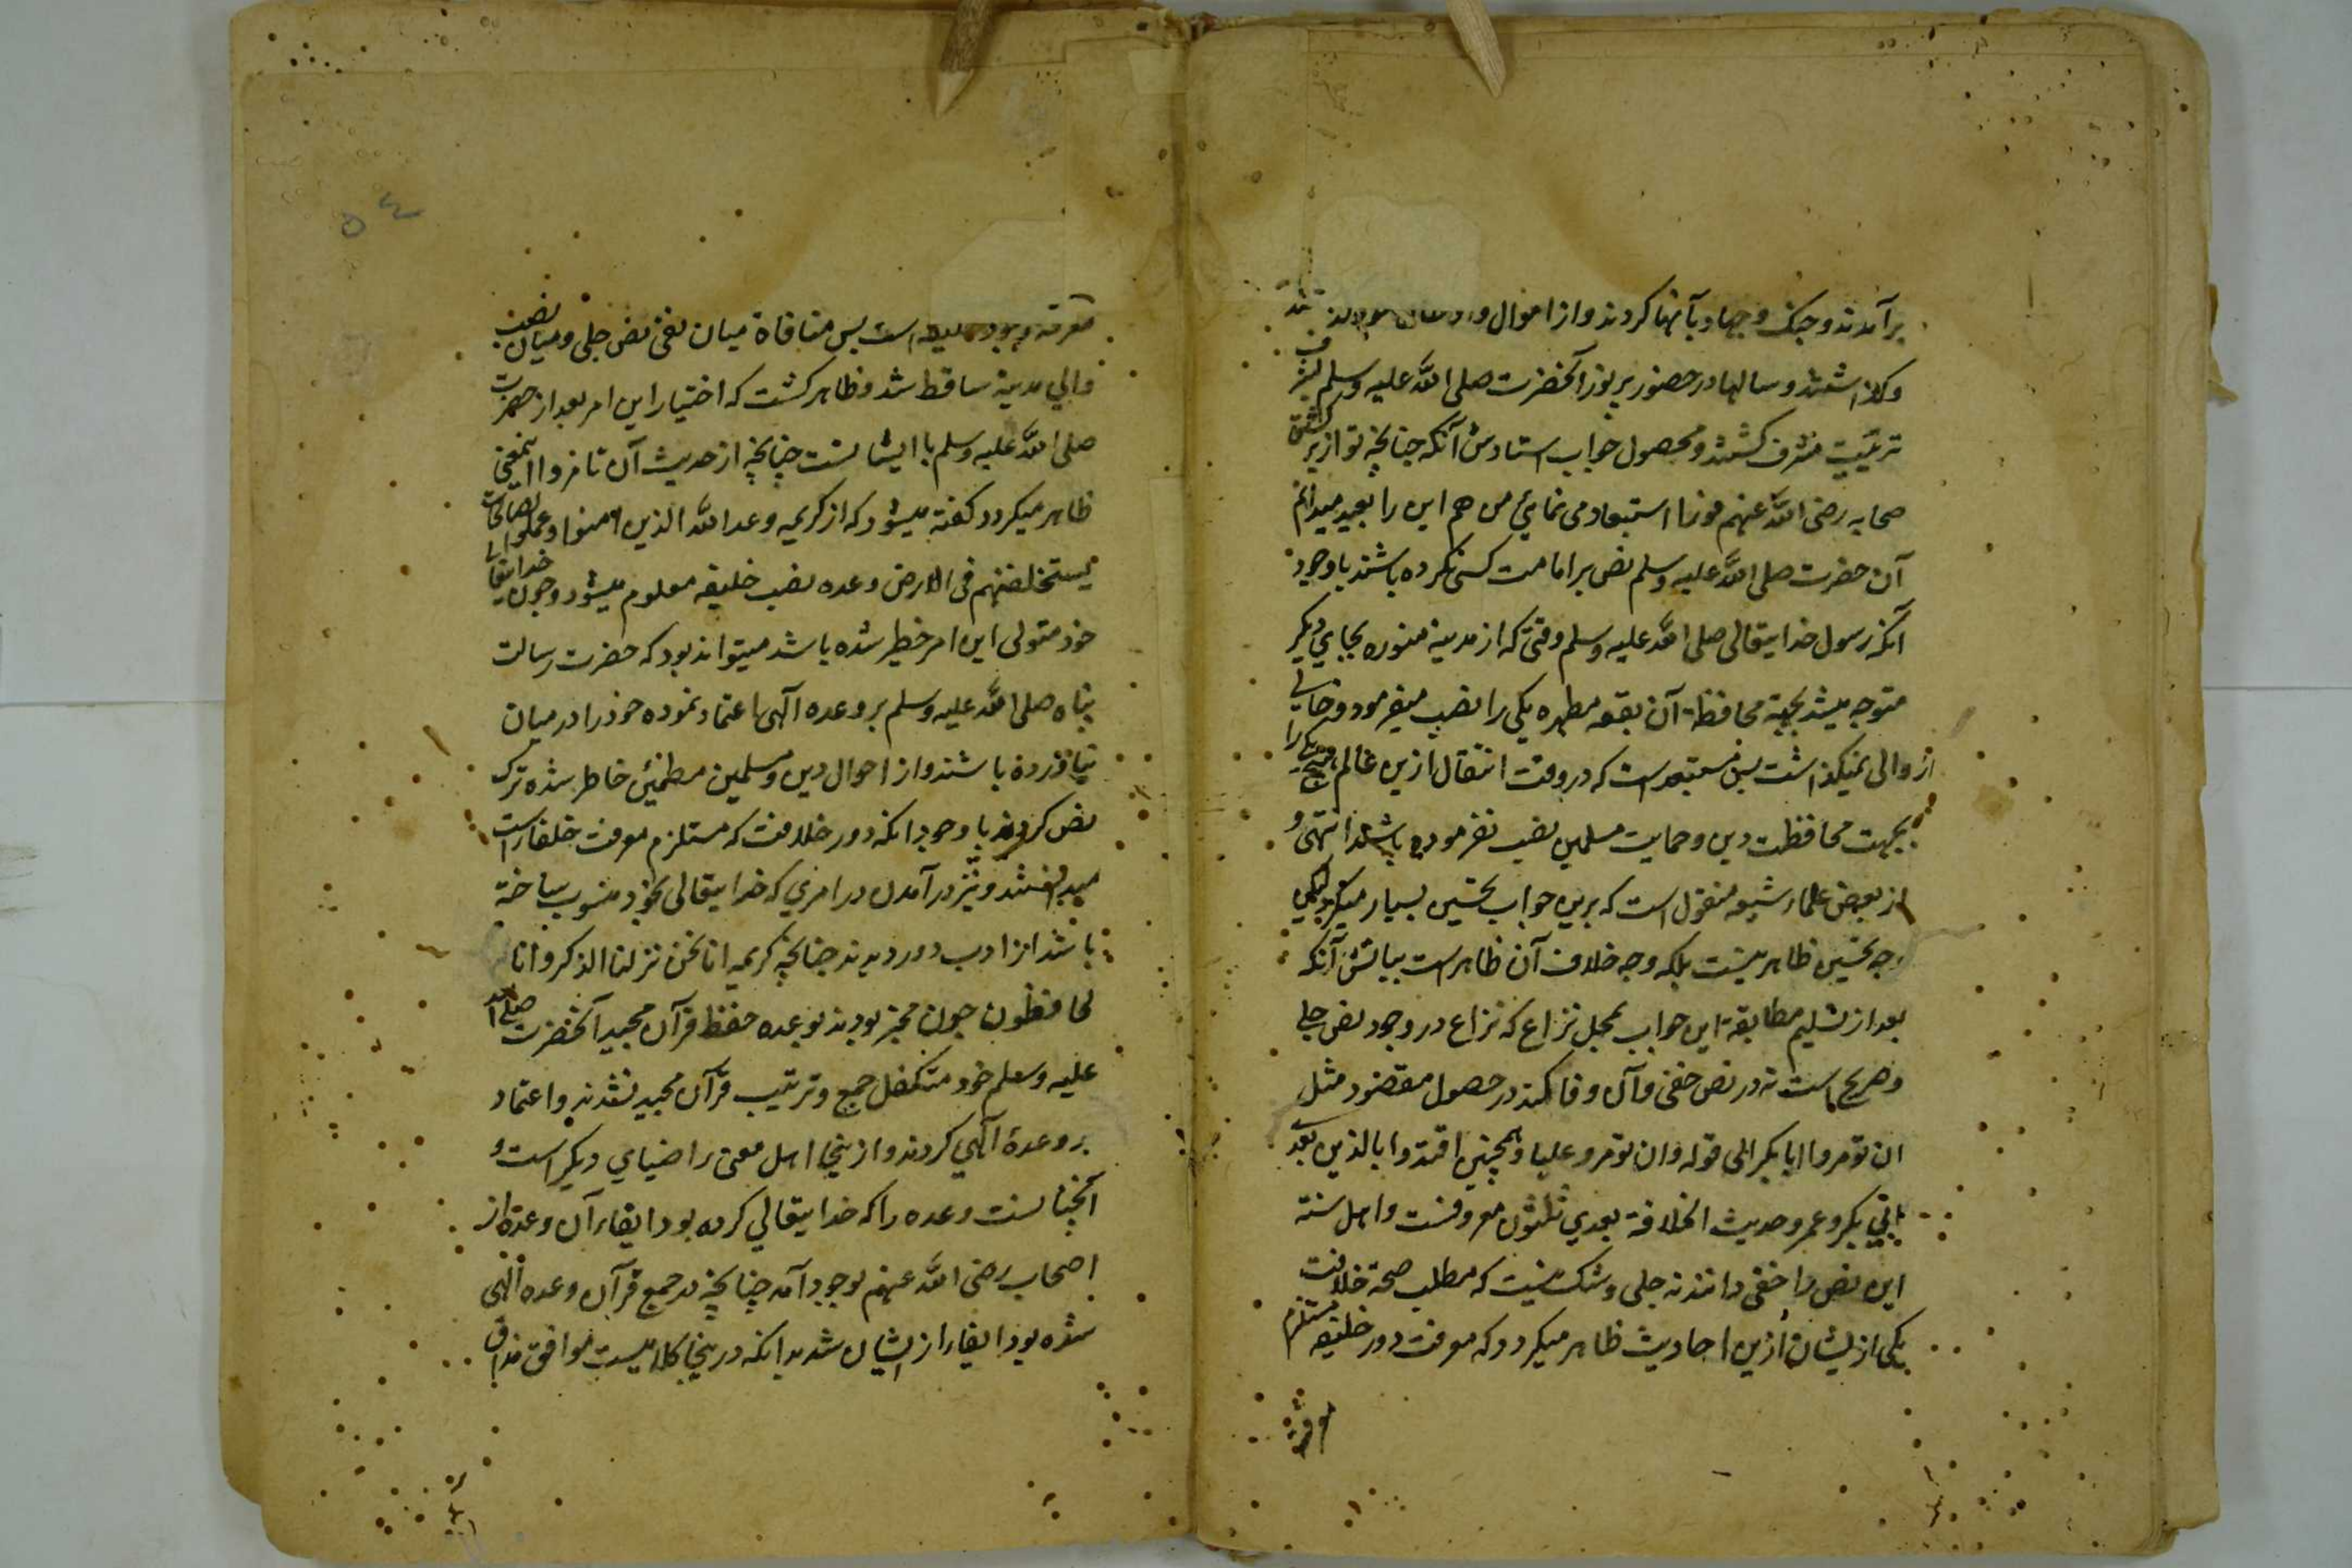 برآمدند و جنک و جهاد بآنها کردند و از اموال و
وکذاشتند و سالها در حضور پر نور آنحضرت صلی الله علیه وسلم بشرف
تربیت مشرف کشتند و محصول جواب استادش آنکه چنانچه تو از برکشتن
صحابه رضی الله عنهم فورا استبعاد می نمائی من هم این را بعید میدانم
آن حضرت صلی الله علیه وسلم نص بر امامت کسی نکرده باشند با وجود
آنکه رسول خدایتعالی صلی الله علیه وسلم وقتی که از مدینه منوره بجای دیکر
متوجه میشد بجهة محافظة آن بقعه مطهره یکی را نصب میفرمود و خالی
از والی نمیکذاشت پس مستبعدست که در وقت انتقال ازین عالم هیچ یکی را
بجهت محافظت دین و حمایت مسلمین نصب نفرموده باشند انتهی و
از بعض علماء شیعه منقول است که برین جواب تحسین بسیار میکرد لیکن
وجه تحسین ظاهر نیست بلکه وجه خلاف آن ظاهرست بیانش آنکه
بعد از تسلیم مطابقة این جواب بمحل نزاع که نزاع در وجود نص جلی
و صریح است نه در نص خفی و آن وفا کند در حصول مقصود مثل
ان تومروا ابابکر الی قوله وان تومروعلیا و همچنین اقتدوا بالذین بعدی
بابی بکر و عمر و حدیث الخلافة بعدی ثلثون معروفست و اهل سنة
این نص را خفی دانند نه جلی و شک نیست که مطلب صحة خلافت
یکی از یشان ازین احادیث ظاهر میکردد که معرفت دور خلیفه مستلزم
معرفه وجود خلیفه است پس منافاة میان نفی نص جلی و میان نصب
والی مدینه ساقط شد و ظاهر کشت که اختیار این امر بعد از حضرت
صلی الله علیه وسلم با ایشانست چنانچه از حدیث آن تامروا اینمعنی
ظاهر میکردد کفته میشود که از کریمه وعد الله الذین امنوا وعملوا الصالحات
لیستخلفنهم فی الارض وعده نصب خلیفه معلوم میشود و چون خدایتعالی
خود متولی این امر خطیر شده باشد میتواند بود که حضرت رسالت
پناه صلی الله علیه وسلم بر وعده آلهی اعتماد نموده خود را درمیان
نیاورده باشند و از احوال دین و مسلمین مطمئن خاطر شده ترک
نص کردند با وجود انکه دور خلافت که مستلزم معرفت خلفاء است
میدانستند و نیز در آمدن در امری که خدایتعالی بخود منسوب ساخته
باشد از ادب دور دیدند چنانچه کریمه انا نحن نزلنا الذکر وانا له
لحافظون چون مخبر بودند بوعده حفظ قرآن مجید آنحضرت صلی الله
علیه وسلم خود متکفل جمع و ترتیب قرآن مجید نشدند و اعتماد
بر وعدهٔ آلهی کردند و ازینجا اهل معنی را ضیای دیکر است و
آنچنانست وعده را که خدایتعالی کرده بود ایفاء آن وعده از
اصحاب رضی الله عنهم بوجود آمد چنانچه در جمع قرآن وعده الهی
شده بود ایفاء از ایشان شد بدانکه درینجا کلامیست موافق مذاق